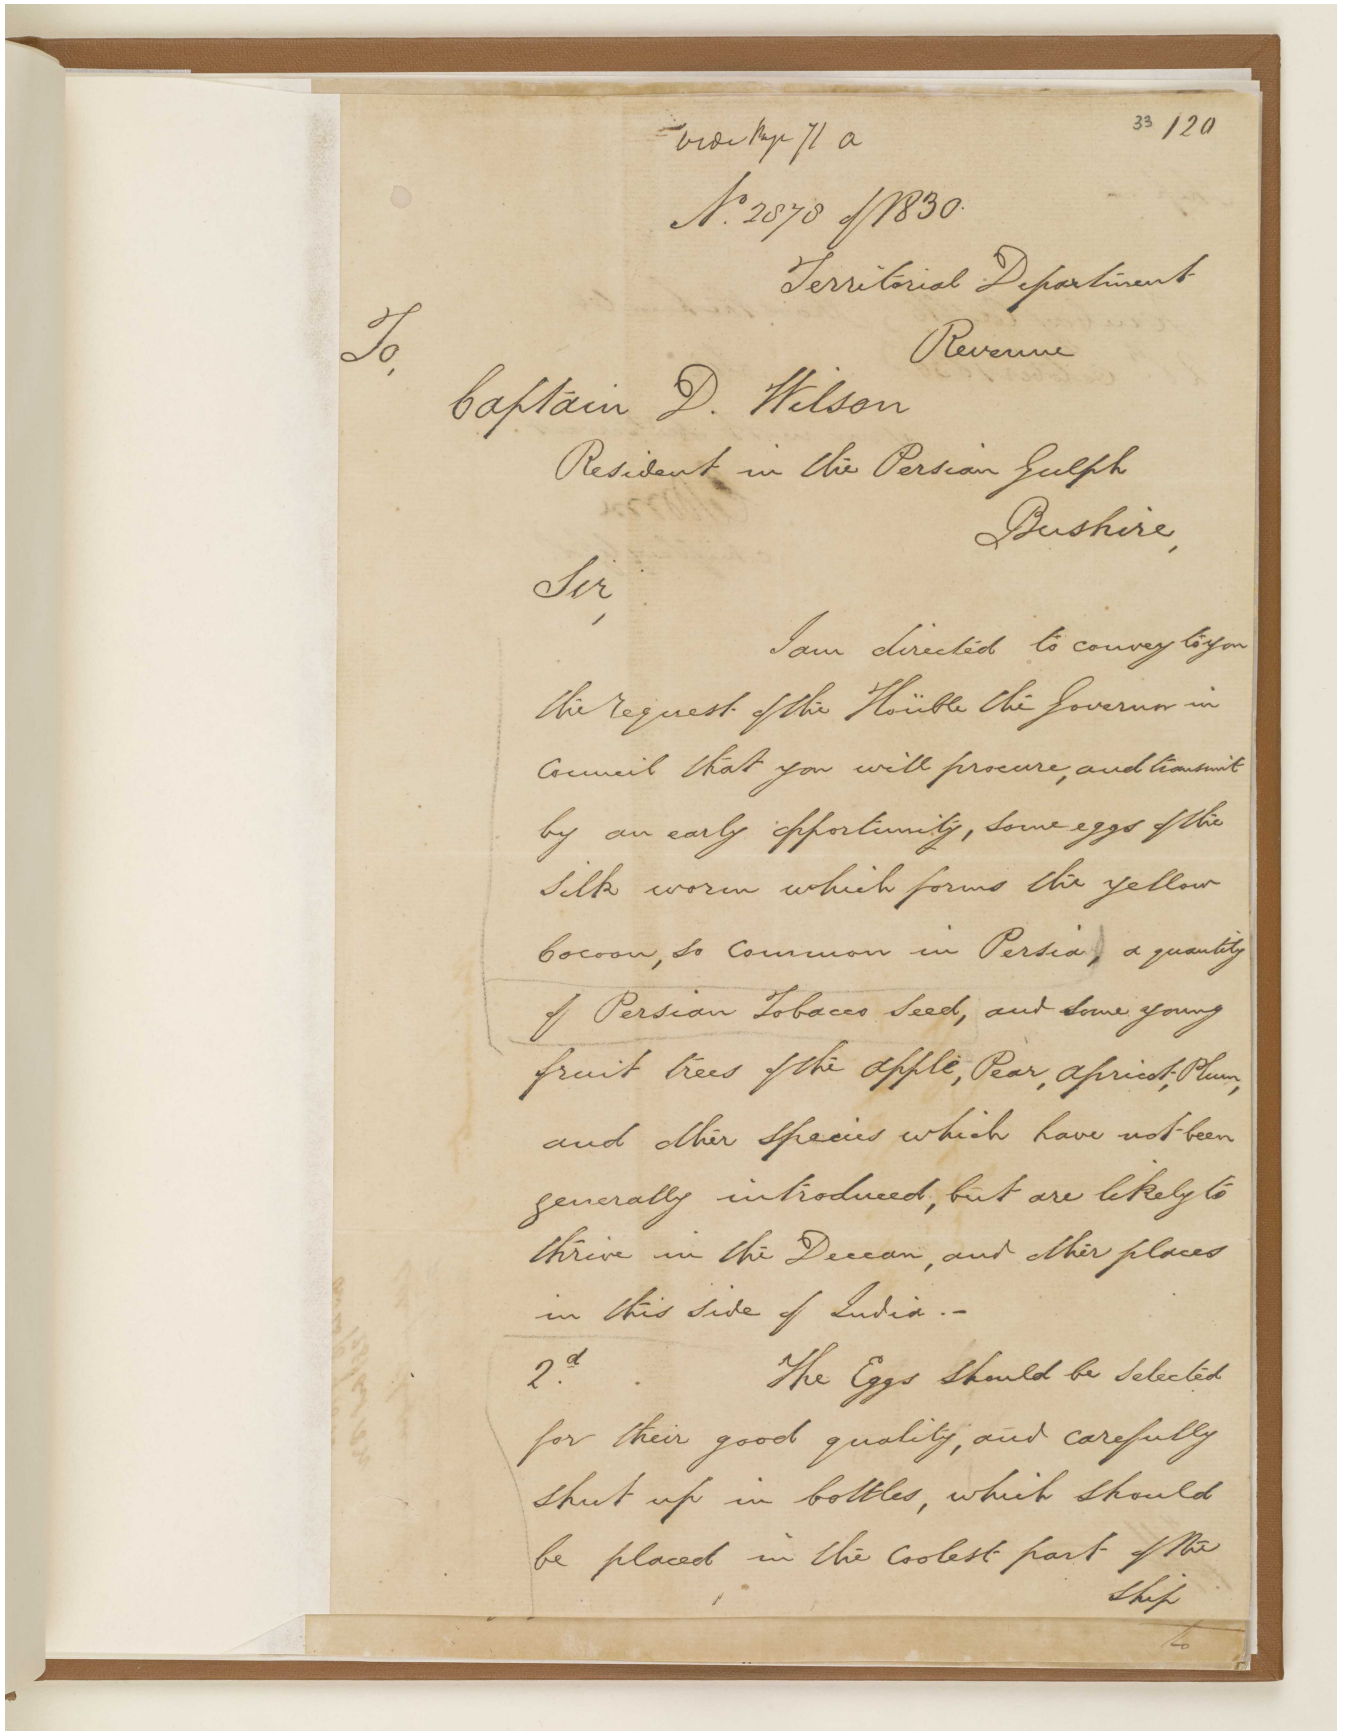 vide Page 71 a
33 120
No. 2878 of 1830.
Territorial Department
Revenue
To,
Captain D. Wilson
Resident in the Persian Gulph
Bushire,
Sir,
I am directed to convey to you
the request of the Honble the Governor in
Council that you will procure, and transmit
by an early opportunity, some eggs of the
silk worm which forms the yellow
Cocoon, so common in Persia, a quantity
of Persian Tobacco seed, and some young
fruit trees of the apple, Pear, apricot, Plum,
and other species which have not been
generally introduced, but are likely to
thrive in the Deccan, and other places
in this side of India.-
2.d The Eggs should be selected
for their good quality, and carefully
shut up in bottles, which should
be placed in the coolest part of the
ship
to